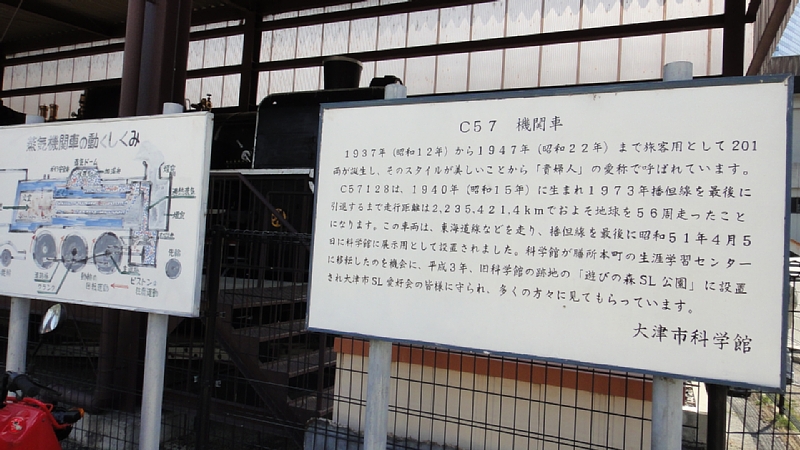 蒸気機関車の動くしくみ
蒸気ドーム
煙室
動輪
ピストンの
往復運動
C57　機関車
1937年（昭和12年）から1947年（昭和22年）まで旅客用として201
両が誕生し、そのスタイルが美しいことから「貴婦人」の愛称で呼ばれています。
C57128は、1940年（昭和15年）に生まれ1973年播但線を最後に
引退するまで走行距離は2,235,421.4kmでおよそ地球を56周走ったこと
になります。この車両は、東海道線などを走り、播但線を最後に昭和51年4月5
日に科学館に展示用として設置されました。科学館が膳所本町の生涯学習センター
に移転したのを機会に、平成3年、旧科学館の跡地の「遊びの森SL公園」に設置
され大津市SL愛好会の皆様に守られ、多くの方々に見てもらっています。
大津市科学館